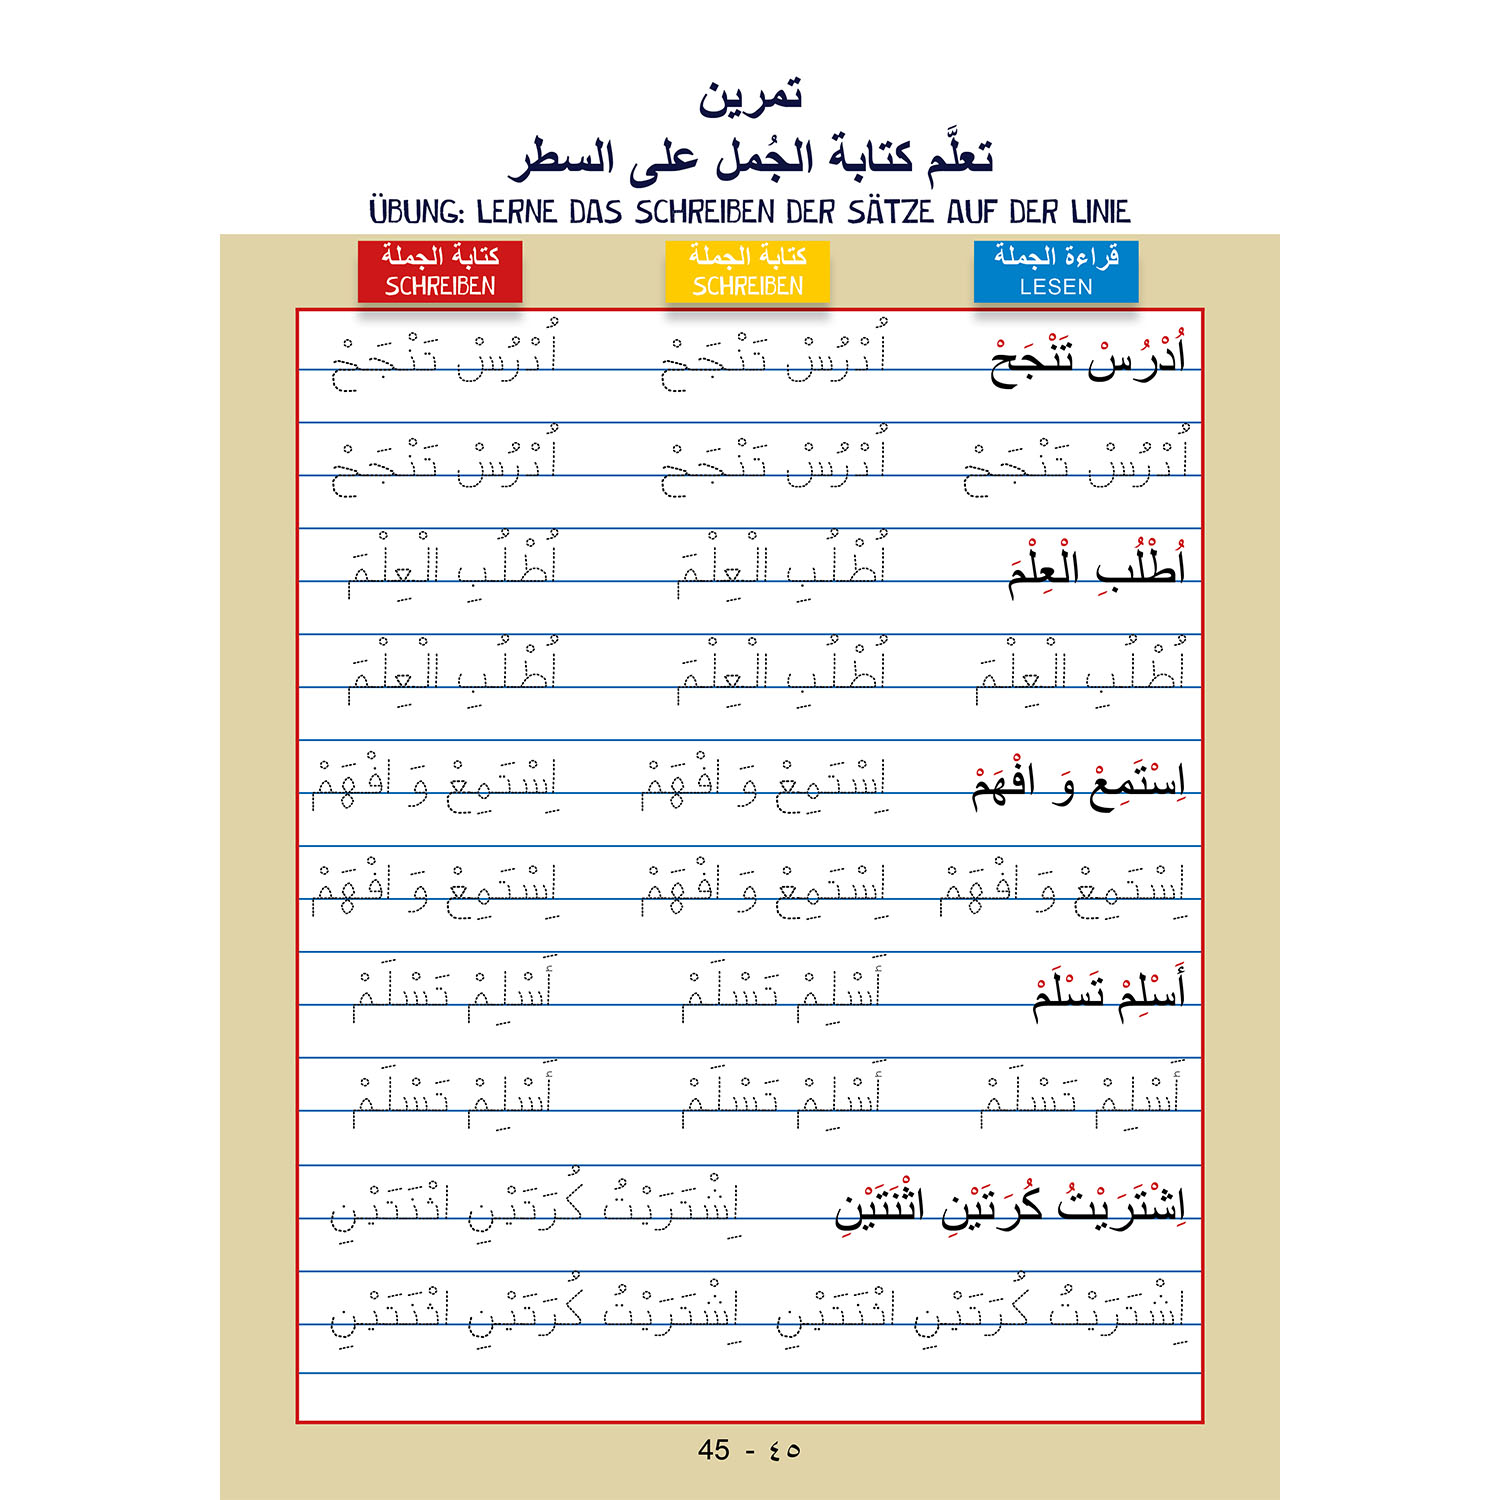 تمرين
تعلَّم كتابة الجُمل على السطر
ÜBUNG: LERNE DAS SCHREIBEN DER SÄTZE AUF DER LINIE
قراءة الجملة كتابة الجملة كتابة الجملة
LESEN SCHREIBEN SCHREIBEN
اُدْرُسْ تَنْجَحْ اُدْرُسْ تَنْجَحْ اُدْرُسْ تَنْجَحْ
اُدْرُسْ تَنْجَحْ اُدْرُسْ تَنْجَحْ اُدْرُسْ تَنْجَحْ
اُطْلُبِ الْعِلْمَ اُطْلُبِ الْعِلْمَ اُطْلُبِ الْعِلْمَ
اُطْلُبِ الْعِلْمَ اُطْلُبِ الْعِلْمَ اُطْلُبِ الْعِلْمَ
اِسْتَمِعْ وَ افْهَمْ اِسْتَمِعْ وَ افْهَمْ اِسْتَمِعْ وَ افْهَمْ
اِسْتَمِعْ وَ افْهَمْ اِسْتَمِعْ وَ افْهَمْ اِسْتَمِعْ وَ افْهَمْ
أَسْلِمْ تَسْلَمْ أَسْلِمْ تَسْلَمْ أَسْلِمْ تَسْلَمْ
أَسْلِمْ تَسْلَمْ أَسْلِمْ تَسْلَمْ أَسْلِمْ تَسْلَمْ
اِشْتَرَيْتُ كُرَتَيْنِ اثْنَتَيْنِ اِشْتَرَيْتُ كُرَتَيْنِ اثْنَتَيْنِ
اِشْتَرَيْتُ كُرَتَيْنِ اثْنَتَيْنِ اِشْتَرَيْتُ كُرَتَيْنِ اثْنَتَيْنِ
45 - ٤٥